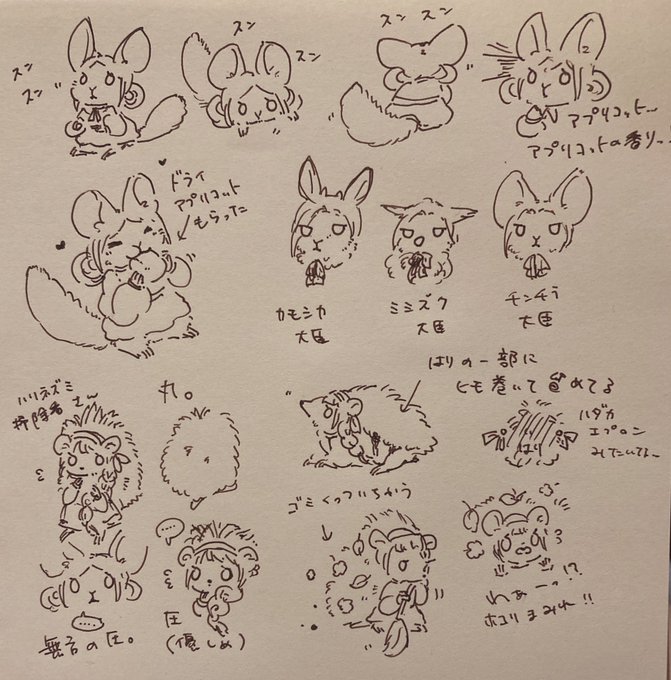 スン
スン
スン
スン
スン スン
アプリコット…
アプリコットの香り…
ドライ
アプリコット
もらった
カモシカ
大臣
ミミズク
大臣
チンチラ
大臣
はりの一部に
ヒモ巻いて留めてる
ハリネズミ
掃除者さん
丸。
はり
ハダカ
エプロン
みたいでし…
ゴミくっついちゃう
無言の圧。
圧
(優しめ)
わぁーっ!?
ホコリまみれ!!